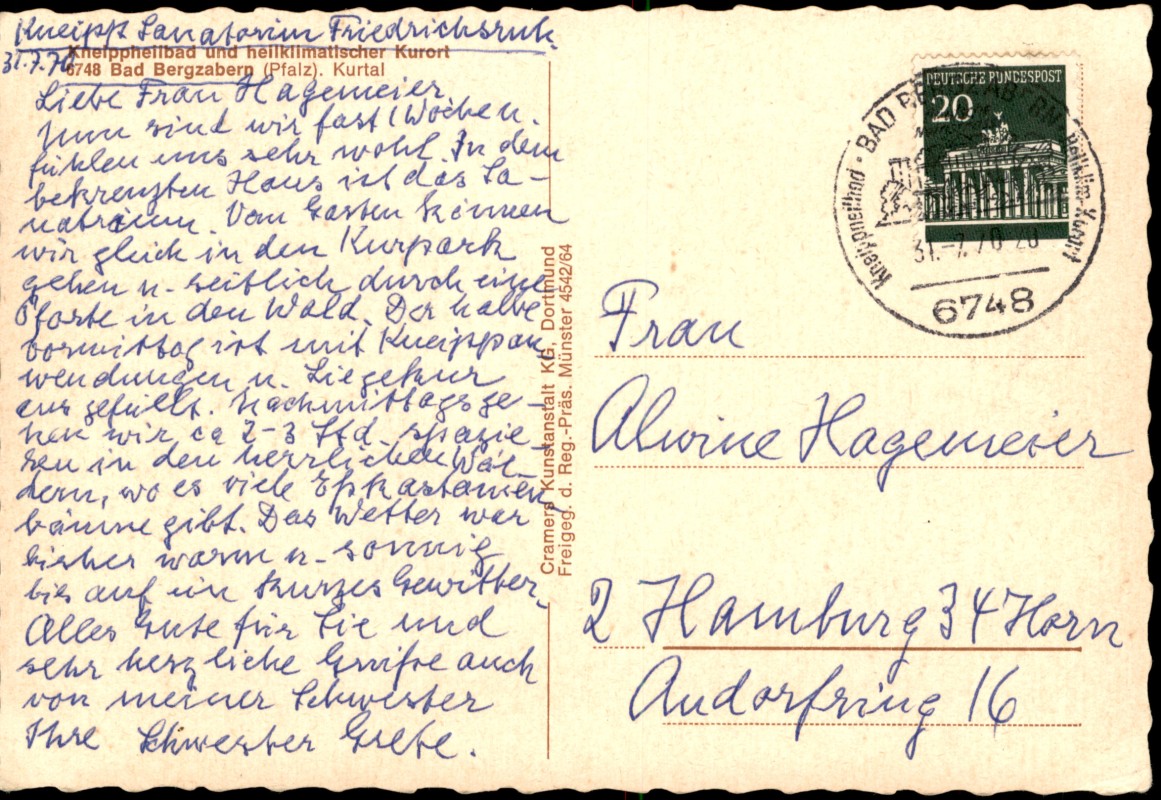 Kneipp Sanatorium Friedrichsruh.
Kneippheilbad und heilklimatischer Kurort
31.7.70
6748 Bad Bergzabern (Pfalz). Kurtal
Liebe Frau Hagemeier,
Nun sind wir fast 1 Wochen.
fühlen uns sehr wohl. In dem
bekreuzten Haus ist das Sa-
natorium. Vom Garten können
wir gleich in den Kurpark
gehen u. seitlich durch eine
Pforte in den Wald. Der halbe
Vormittag ist mit Kneippan
wendungen u. Liegekur
ausgefüllt. Nachmittags ge-
hen wir ca 2-3 Std. spazie-
ren in den herrlichen Wäl-
dern, wo es viele Eßkastanien
bäume gibt. Das Wetter war
bisher warm u. sonnig
bis auf ein kurzes Gewitter.
Alles Gute für Sie und
sehr herzliche Grüße auch
von meiner Schwester
Ihre Schwester Grete.
Cramers Kunstanstalt KG, Dortmund
Freigeg. d. Reg.-Präs. Münster 4542/64
DEUTSCHE BUNDESPOST
20
Kneippheilbad · BAD BERGZABERN heilklim. Kurort
31.-7.70-20
6748
Frau
Alwine Hagemeier
2 Hamburg 34 Horn
Andorfring 16